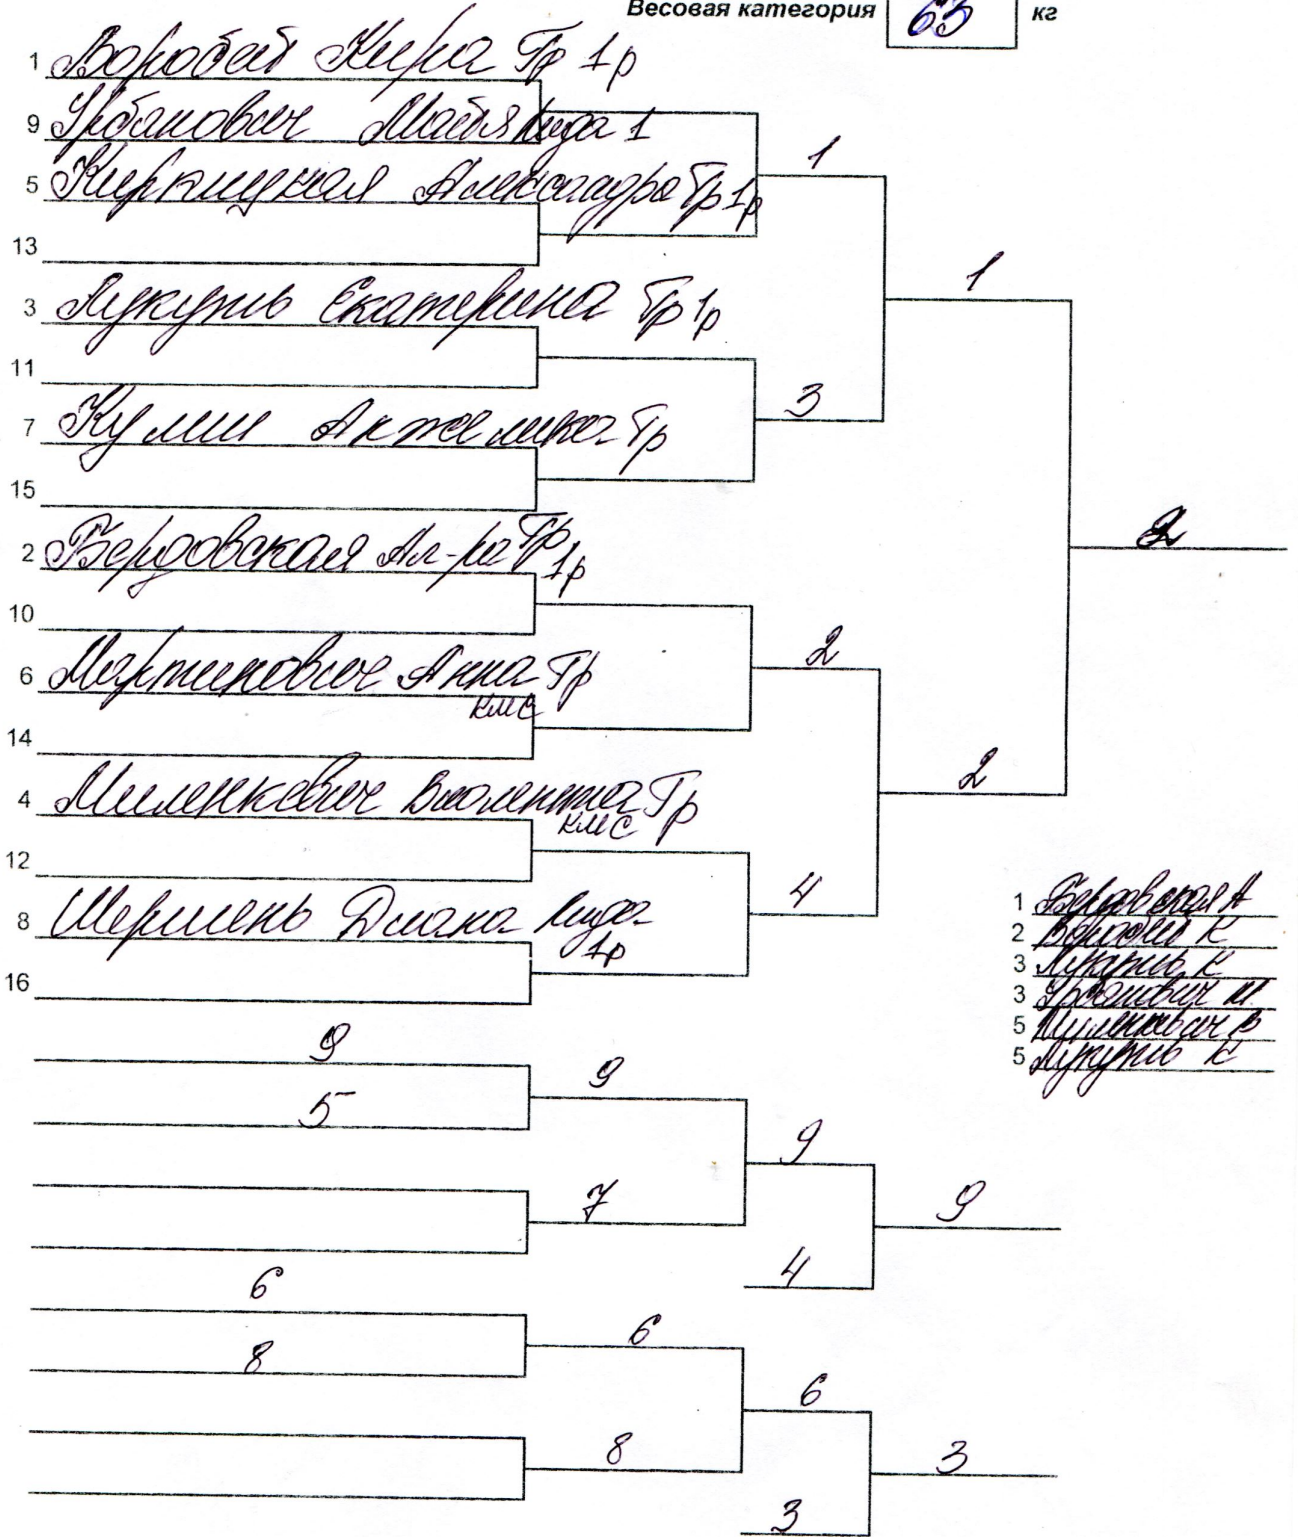 Весовая категория 63 кг
1 Воробей Кира Гр 1р
9 Урбанович Майя Лида 1
5 Александра Гр 1р
13
3 Лукуть Екатерина Гр 1р
11
7 Кулеш Анжелика Гр
15
2 Бердовская Ал-ра Гр 1р
10
6 Мартинович Анна Гр
кмс
14
4 Миленкевич Виолетта Гр
кмс
12
8 Шершень Диана Лида
1р
16
1
3
1
2
4
2
2
1 Бердовская А
2 Воробей К
3 Лукуть К
3 Урбанович М
5 Миленкевич В
5 Лукуть К
9
5
9
7
9
4
9
6
8
6
8
6
3
3